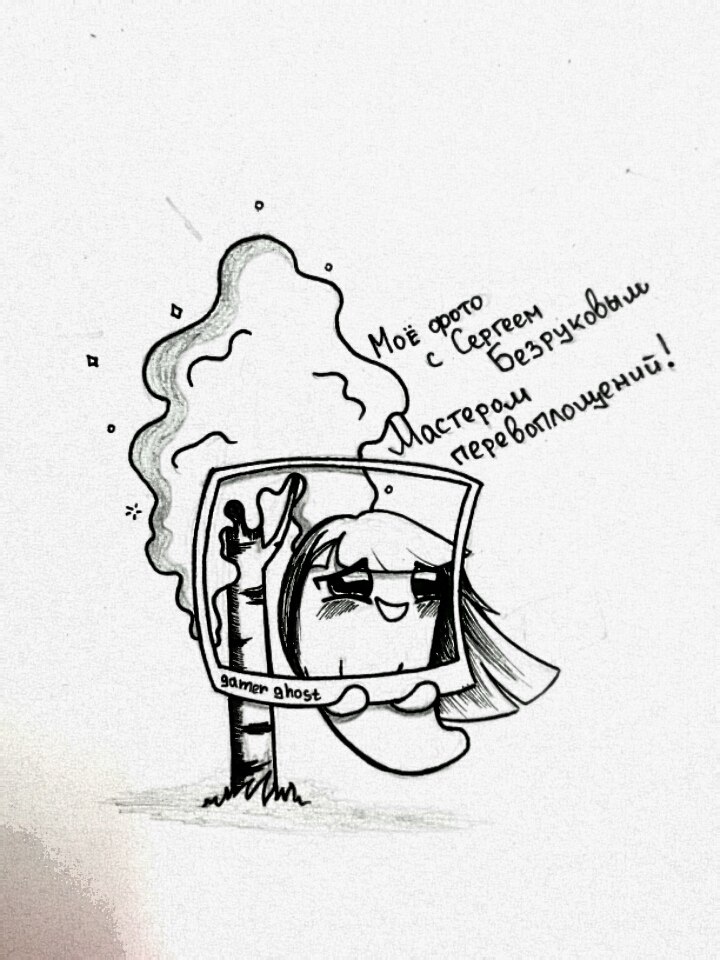 Моё фото
с Сергеем
Безруковым
Мастером
перевоплощений!
gamer ghost